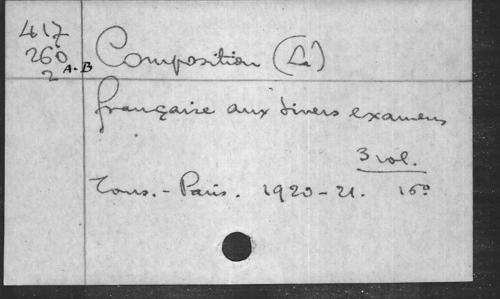 417
260
2 A-B
Composition (La)
française aux divers examens
3 vol.
Tours. - Paris. 1920-21. 16°